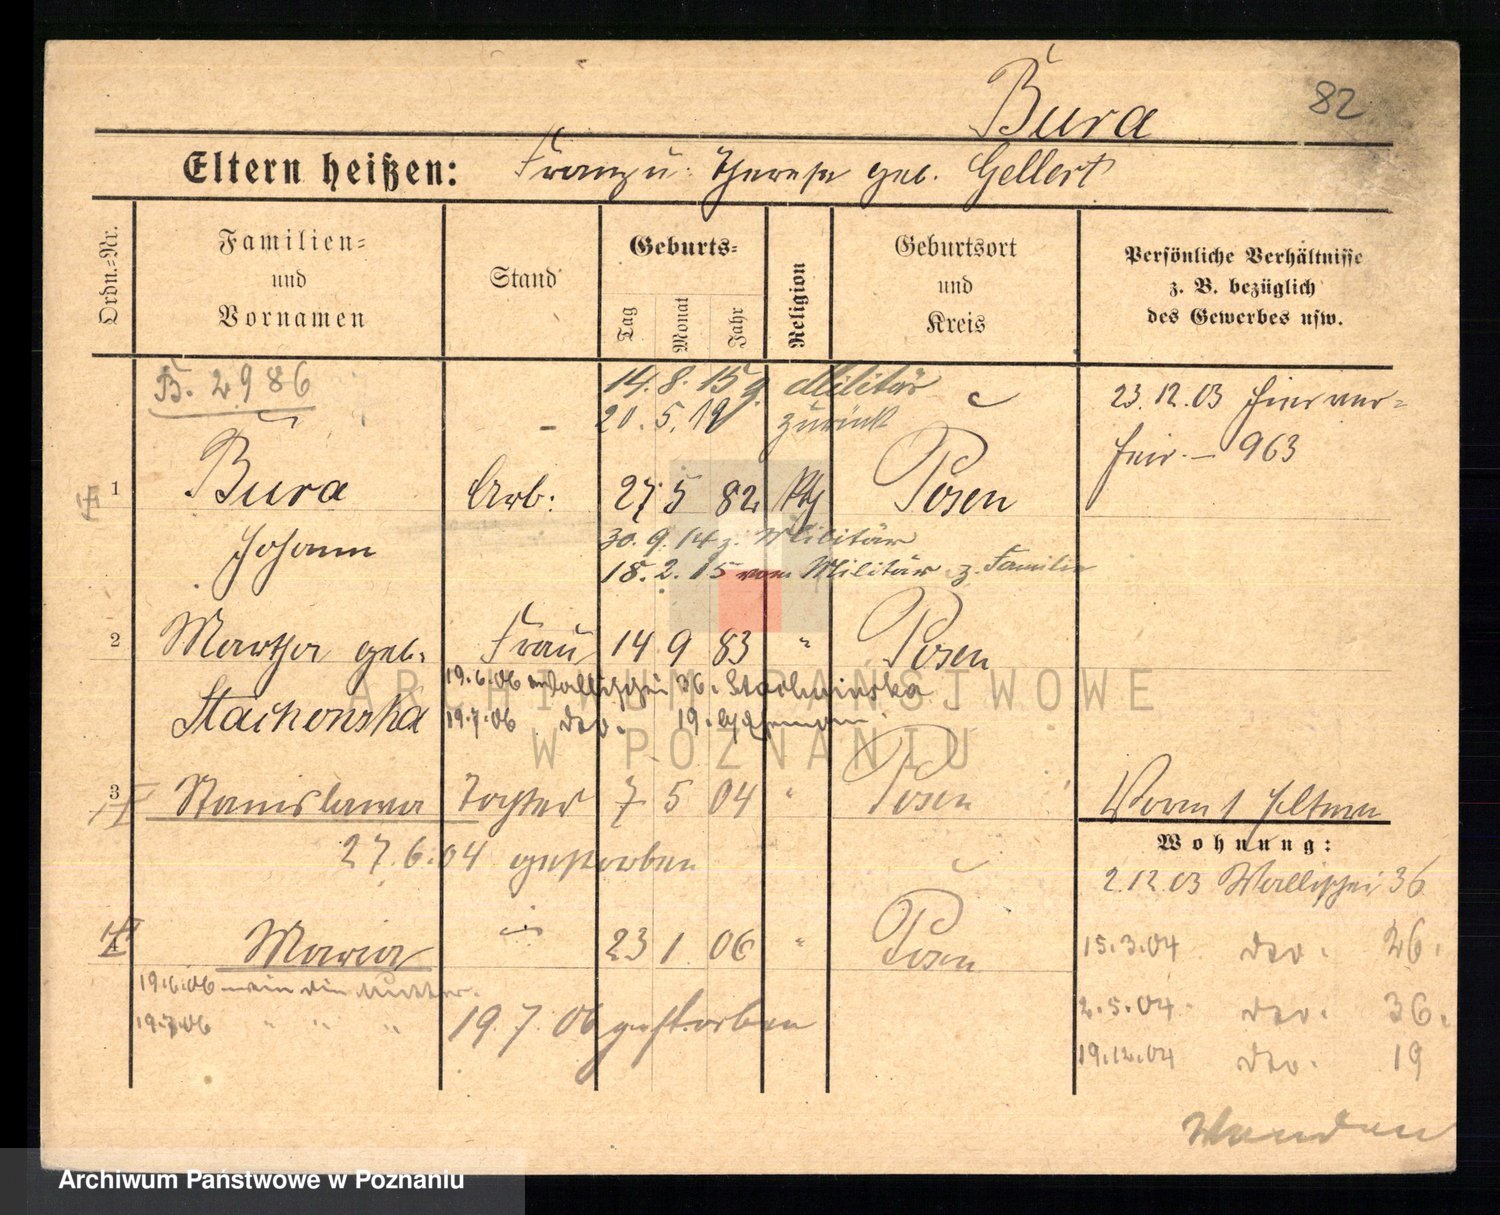 Bura 82
Eltern heißen: Franz u. Therese geb. Gellert
Ordn.-Nr. Familien- und Vornamen Stand Geburts- Tag Monat Jahr Religion Geburtsort und Kreis Persönliche Verhältnisse z. B. bezüglich des Gewerbes usw.
B. 2986 14. 8. 15 z. Militär 23.12.03 hier ver-
20. 5. 19 zurück heir. – 963
1 Bura Arb: 27 5 82 Kth Posen
Johann 30. 9. 14 z. Militär
18. 2. 15 vom Militär z. Familie
2 Martha geb. Frau 14 9 83 " Posen
19.6.06 Wallischei 36.
Stachowska 19.7.06 do. 19.
3 Stanislawa Tochter 7 5 04 " Posen Vorm 1 Eltern
27.6.04 gestorben
Wohnung:
2.12.03 Wallischei 36
4 Maria " 23 1 06 " Posen 15.3.04 do. 26.
19.6.06 wie die Mutter.
2.5.04 do. 36.
19.7.06 " " " 19. 7. 06 gestorben
19.12.04 do. 19
Wenden
ARCHIWUM PAŃSTWOWE
W POZNANIU
Archiwum Państwowe w Poznaniu